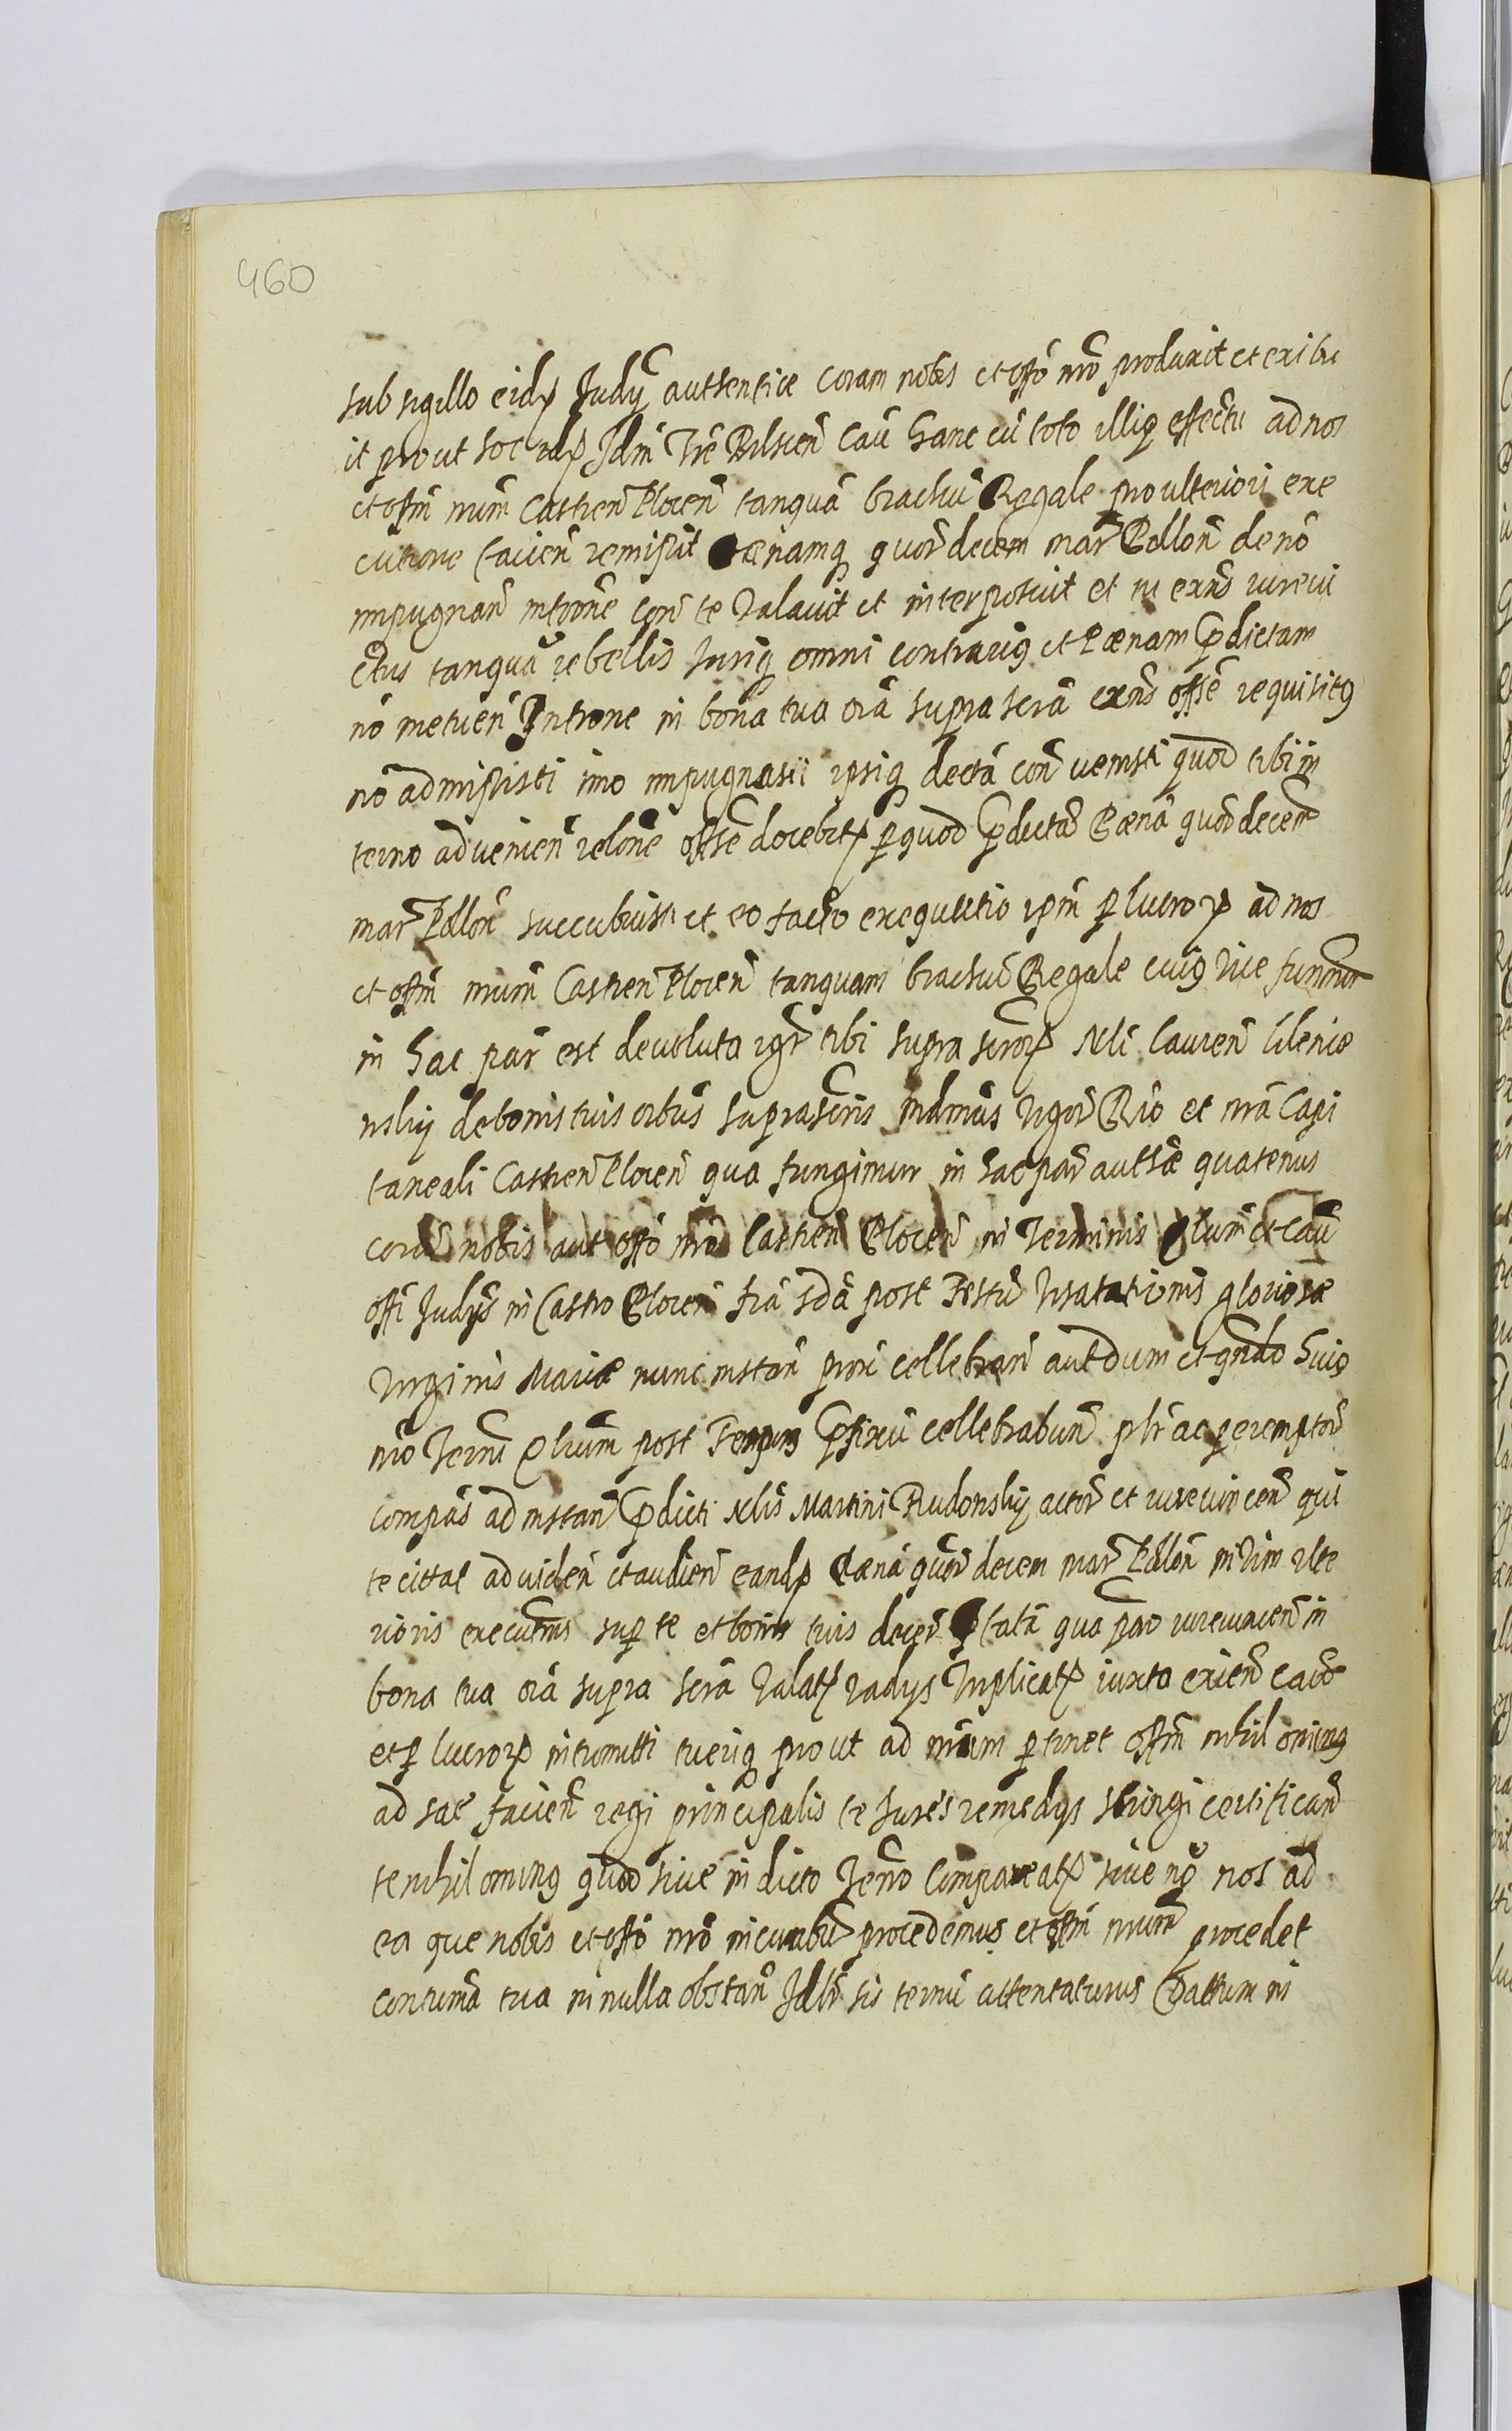 460
sub sigillo eidẽ Judỹ authentice coram nobis et offõ nrõ produxit et exibu
it prout hoc idẽ Jdm Trẽ Bilscen̄ Caũ hanc cũ toto illiq effectu ad nos
et offm nrum Castren̄ Plocen̄ tanquã brachiũ Regale pro ulteriori exe
cutione facien̄ remisit Poenamq quor̄decem mar̄ Pollon̄ de nõ
impugnan̄ intrõne con̄ te Valavit et interposuit et tu exñs iurevi
ctus tanquã rebellis Jurisq omni contrarius et Poenam p̃dictam
nõ metuen̄ Intrõne in bona tua oĩa suprascrã exñs offsẽ requisitus
nõ admisisti imo impugnasti ipsiq dectã con̄ venisti quod tibi in
terno advenien̄ relõne offsẽ docebitr̃ p quod p̃dictã Poenã quor̄decem
mar̄ Pollon̄ succubuisti et eo facto exequutio ipm p lucrorp ad nos
et offm nrum Castren̄ Plocen̄ tanquam brachiũ Regale cuius vice fungimur
in hac par̄ est devoluta igr̄ tibi suprascrorp Nli Lauren̄ Cilenie
nskij de bonis tuis oĩbus suprascrĩs mdmus vigor̄ Riõ et nrã Capi
taneali Castren̄ Plocen̄ qua fungimur in hac par̄ authẽ quatenus
corã nobis aut offõ nrõ Castren̄ Plocen̄ in Terminis qlum et cau
offi Judỹs in Castro Plocen̄ fiã sdã post Festũ Visitationis gloriosæ
Virginis Mariæ nunc instan̄ prox̃ cellebran̄ aut dum et qndo huius
mõi Terni qlum post Tempus p̃fixũ cellebrabun̄ plr̄ ac peremptor̄
compãs ad instan̄ p̃dicti Nlis Martini Rudonskij actor̄ et iurevincen̄ qui
te citat ad viden̄ et audien̄ eandẽ Poenã quor̄decem mar̄ Pollon̄ in vim ulte
rioris executnis sup te et bonis tuis decer̄ latã qua par̄ iurevincen̄ in
bona tua oĩa supra scrã Valatẽ vadys Triplicatẽ iuxta exien̄ eam̄
et p lucrorp intromitti tueriq prout ad nrum ptinet offm nihilominus
ad sat facien̄ regi principalis te Jures remedys stringi certifican̄
te nihilominus quod sive in dicto Terno Compareatẽ sive nõ nos ad
ea que nobis et offõ nrõ incumbũ procedemus et offm nrum procedet
contumã tua in nulla obstan̄ Jdlr̄ sis ternũ attentaturus Dattum in